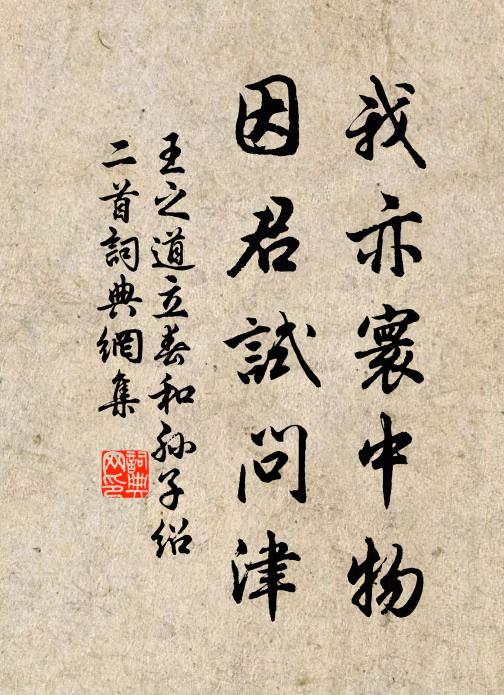 我亦寰中物
因君試問津
王之道立春和孙子绍
二首詞典網集
詞典
网印